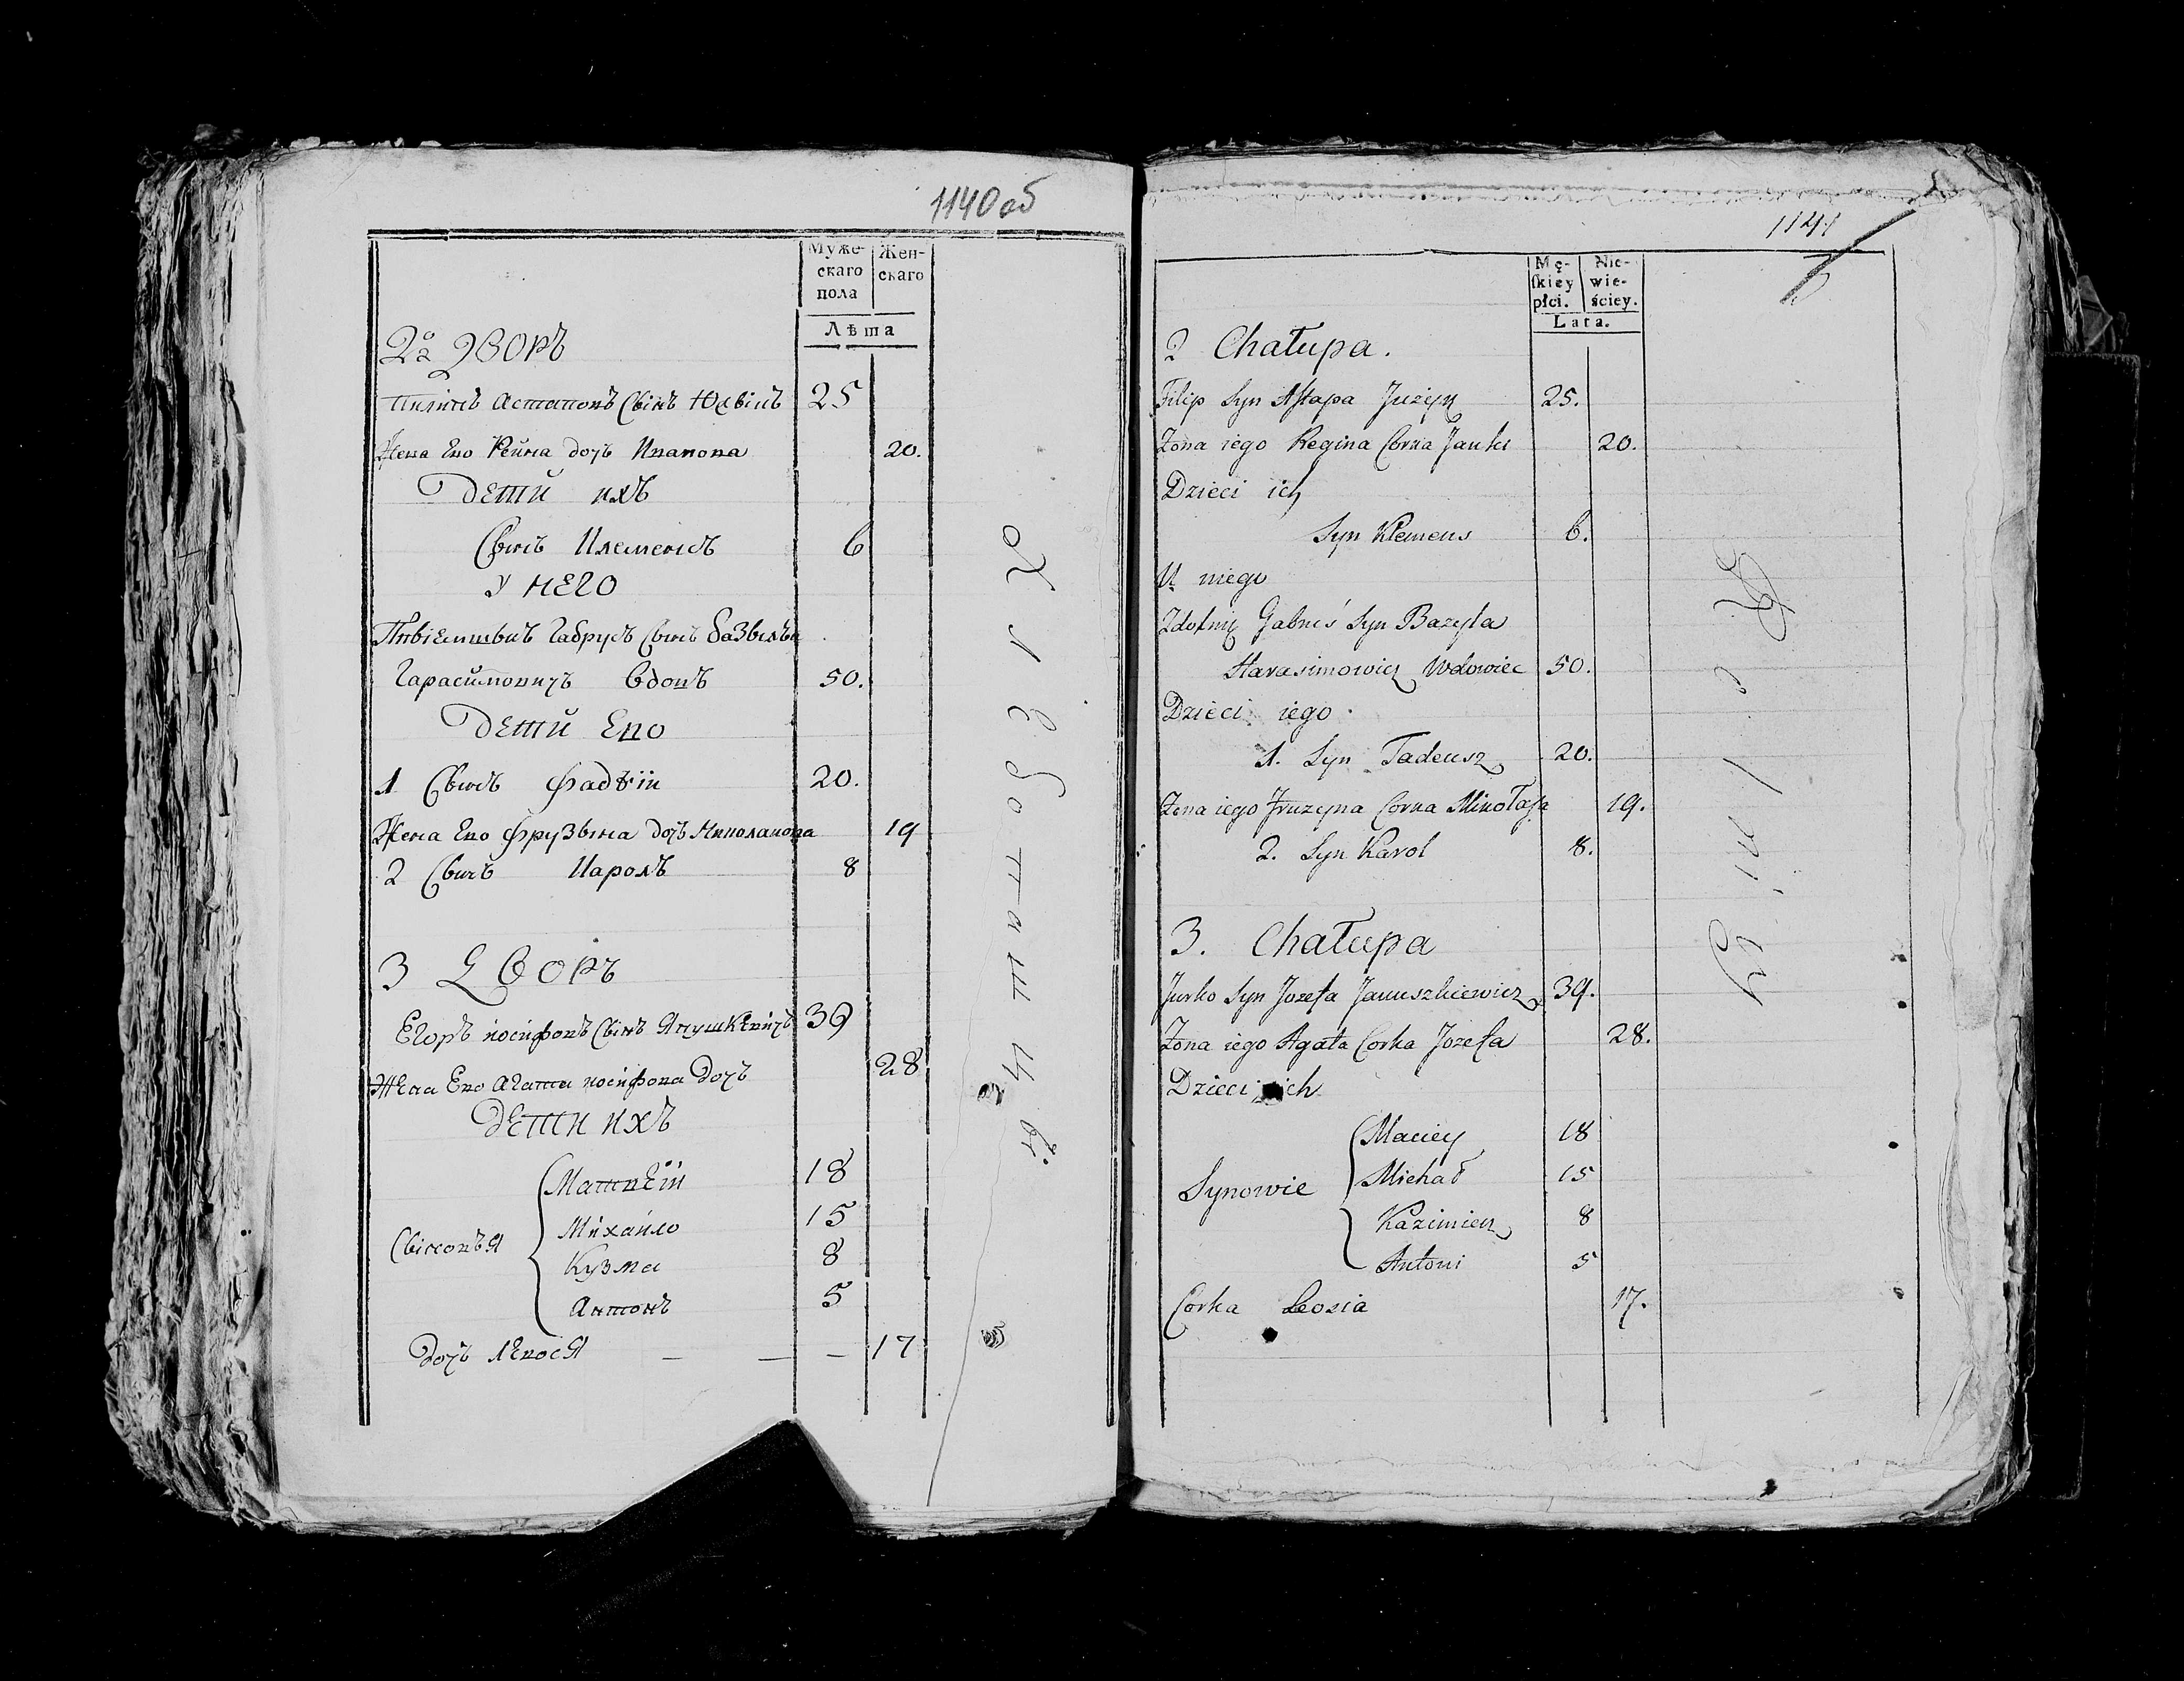 1140 об
Муже-
скаго
пола
Жен-
скаго
Лѣта
2й дворъ
Пилипъ Астаповъ Свінъ Юзвінъ 25
Жена Ево Реина дочь Иванова 20.
Дети ихъ
Свинъ Клеменсъ 6
У него
Габрусь Свинъ базвилья
Гарасимовичъ Вдовъ 50.
Дети Ево
1 Свинъ Фадѣiи 20.
Жена Ево Фрузвина дочь Миколаиова 19
2 Свинъ Кароль 8
3 Дворъ
Егоръ иосифовъ Свінъ Янушкевичъ 39
Жена Ево Агата иосифова дочь 28
Дети ихъ
Матвѣiи 18
Михаило 15
Свіновья
Кузма 8
Антонъ 5
дочь Левося — — — 17
1141
Mę-
skiey
płci.
Nie-
wie-
ściey.
Lata.
2 Chałupa.
Filip Syn Astapa Juzyn 25.
Zona iego Regina Corka Janki 20.
Dzieci ich
Syn Klemens 6.
U niego
Gabruś Syn Bazyla
Harasimowicz Wdowiec 50.
Dzieci iego
1. Syn Tadeusz 20.
Zona iego Fruzyna Corka Mikołaja 19.
2. Syn Karol 8.
3. Chałupa
Jurko Syn Jozefa Januszkiewicz 39.
Zona iego Agata Corka Jozefa 28.
Dzieci ich
Maciey 18
Synowie
Michał 15
Kazimierz 8
Antoni 5
Corka Leosia 17.